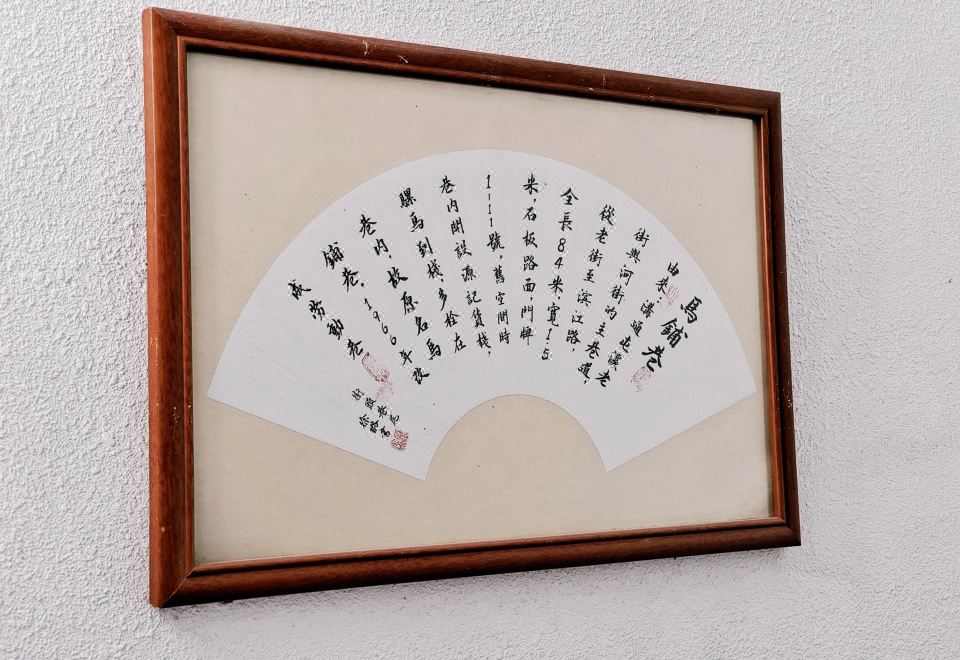 馬鋪巷
由來:溝通屯溪老
街與河街的主巷道,
從老街至滨江路,
全長84米,寬1.5
米,石板路面,門牌
1-11號。舊空間時
巷内開設源記貨棧,
騾馬到棧,多栓在
巷内,故原名馬
鋪巷。1966年改
成勞動巷